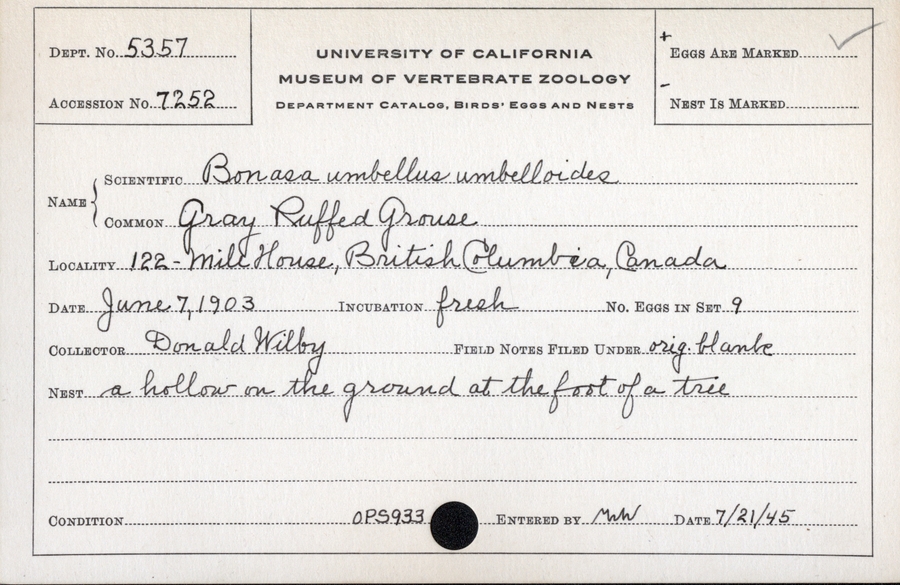 DEPT. No. 5357
ACCESSION No. 7252
UNIVERSITY OF CALIFORNIA
MUSEUM OF VERTEBRATE ZOOLOGY
DEPARTMENT CATALOG, BIRDS' EGGS AND NESTS
+ EGGS ARE MARKED ✓
- NEST IS MARKED
NAME
SCIENTIFIC Bonasa umbellus umbelloides
COMMON Gray Ruffed Grouse
LOCALITY 122-Mile House, British Columbia, Canada
DATE June 7, 1903 INCUBATION fresh No. EGGS IN SET 9
COLLECTOR Donald Wilby FIELD NOTES FILED UNDER orig. blank
NEST a hollow on the ground at the foot of a tree
CONDITION OPS933 ENTERED BY DATE 7/21/45